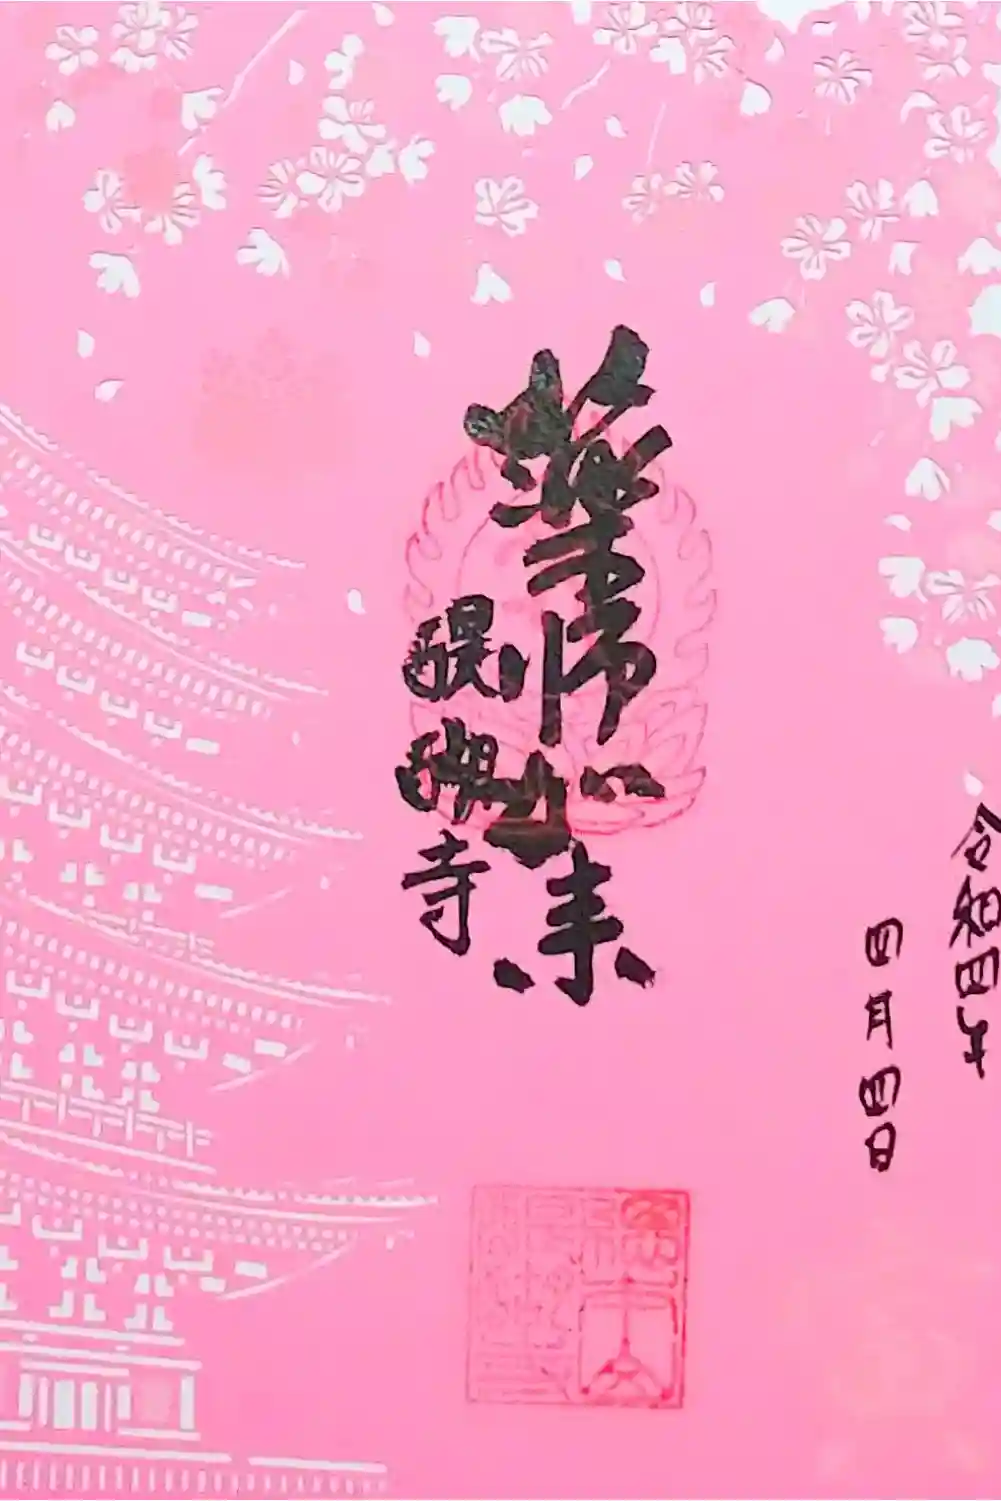 令和四年
四月四日
薬師如来
醍醐寺